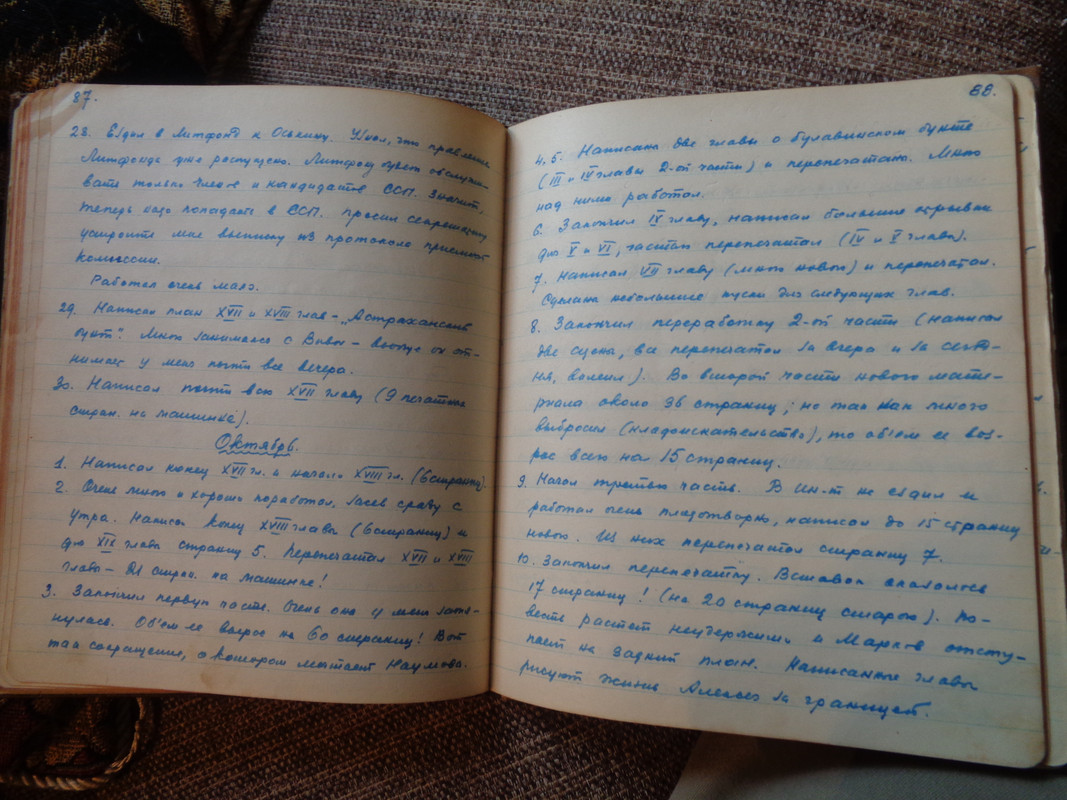 87.
28. Ездил в Литфонд к Оськину. Узнал, что правление
Литфонда уже распущено. Литфонд будет обслужи-
вать только членов и кандидатов ССП. Значит,
теперь надо попадать в ССП. Просил секретаршу
устроить мне выписку из протокола приемной
комиссии.
Работал очень мало.
29. Написал план XVII и XVIII глав - „Астраханский
бунт". Много занимаюсь с Вивой -
нимает у меня почти все вечера.
30. Написал почти всю XVII главу (9 печатных
стран. на машинке).
Октябрь.
1. Написал конец XVII гл. и начало XVIII гл. (6 страниц).
2. Очень много и хорошо поработал, засев сразу с
утра. Написал конец XVIII главы (6 страниц) и
для XIX главы страниц 5. Перепечатал XVII и XVIII
главы - 21 стран. на машинке!
3. Закончил первую часть. Очень она у меня затя-
нулась. Об'ем ее вырос на 60 страниц! Вот
так сокращение, о котором мечтает Наумова.
88.
4.5. Написаны две главы о булавинском бунте
(III и IV главы 2-ой части) и перепечатано. Много
над ними работал.
6. Закончил IV главу, написал большие отрывки
для V и VI, частью перепечатал (IV и V главы).
7. Написал VII главу (много нового) и перепечатал.
Сделаны небольшие куски для следующих глав.
8. Закончил переработку 2-ой части (написал
две сцены, все перепечатал за вчера и за сегод-
ня, вклеил). Во второй части нового мате-
риала около 36 страниц; но так как много
выбросил (кладоискательство), то об'ем ее воз-
рос всего на 15 страниц.
9. Начал третью часть. В Ин-т не ездил и
работал очень плодотворно, написал до 15 страниц
нового. Из них перепечатал страниц 7.
10. Закончил перепечатку. Вставок оказалось
17 страниц! (на 20 страниц старого). По-
весть растет неудержимо и Марков отсту-
пает на задний план. Написанные главы
рисуют жизнь Алексея за границей.